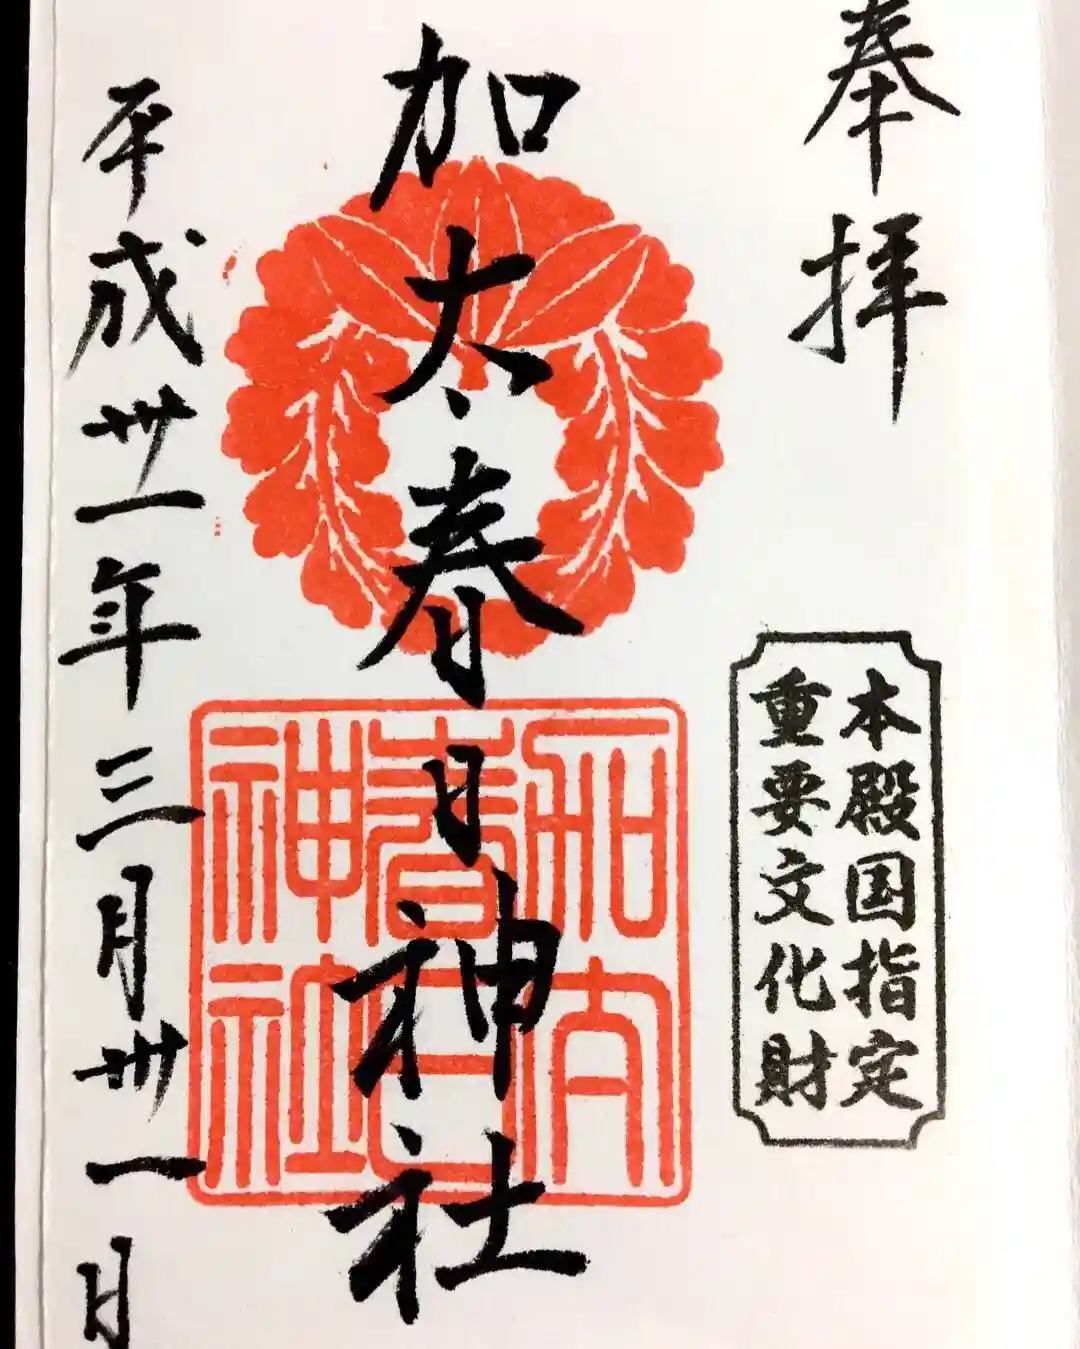 奉拝
本殿国指定
重要文化財
加太春日神社
春日
神社
平成卅一年三月卅一日